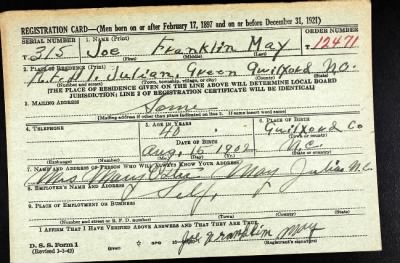 REGISTRATION CARD—(Men born on or after February 17, 1897 and on or before December 31, 1921)
SERIAL NUMBER 1. NAME (Print) ORDER NUMBER
T 215 Joe Franklin May T12471
(First) (Middle) (Last)
2. PLACE OF RESIDENCE (Print)
Rt #1, Julian, Green Guilford N.C.
(Number and street) (Town, township, village, or city) (County) (State)
[THE PLACE OF RESIDENCE GIVEN ON THE LINE ABOVE WILL DETERMINE LOCAL BOARD
JURISDICTION; LINE 2 OF REGISTRATION CERTIFICATE WILL BE IDENTICAL]
3. MAILING ADDRESS
Same
(Mailing address if other than place indicated on line 2. If same insert word same)
4. TELEPHONE 5. AGE IN YEARS 6. PLACE OF BIRTH
40 Guilford Co
DATE OF BIRTH (Town or county)
Aug. 1902 N.C.
(Exchange) (Number) (Mo.) (Day) (Yr.) (State or country)
7. NAME AND ADDRESS OF PERSON WHO WILL ALWAYS KNOW YOUR ADDRESS
Mrs May Julian N.C.
8. EMPLOYER'S NAME AND ADDRESS
Self
9. PLACE OF EMPLOYMENT OR BUSINESS
(Number and street or R. F. D. number) (Town) (County) (State)
I AFFIRM THAT I HAVE VERIFIED ABOVE ANSWERS AND THAT THEY ARE TRUE.
D. S. S. Form 1 Joe Franklin May
(Revised 1-1-42) (Registrant's signature)